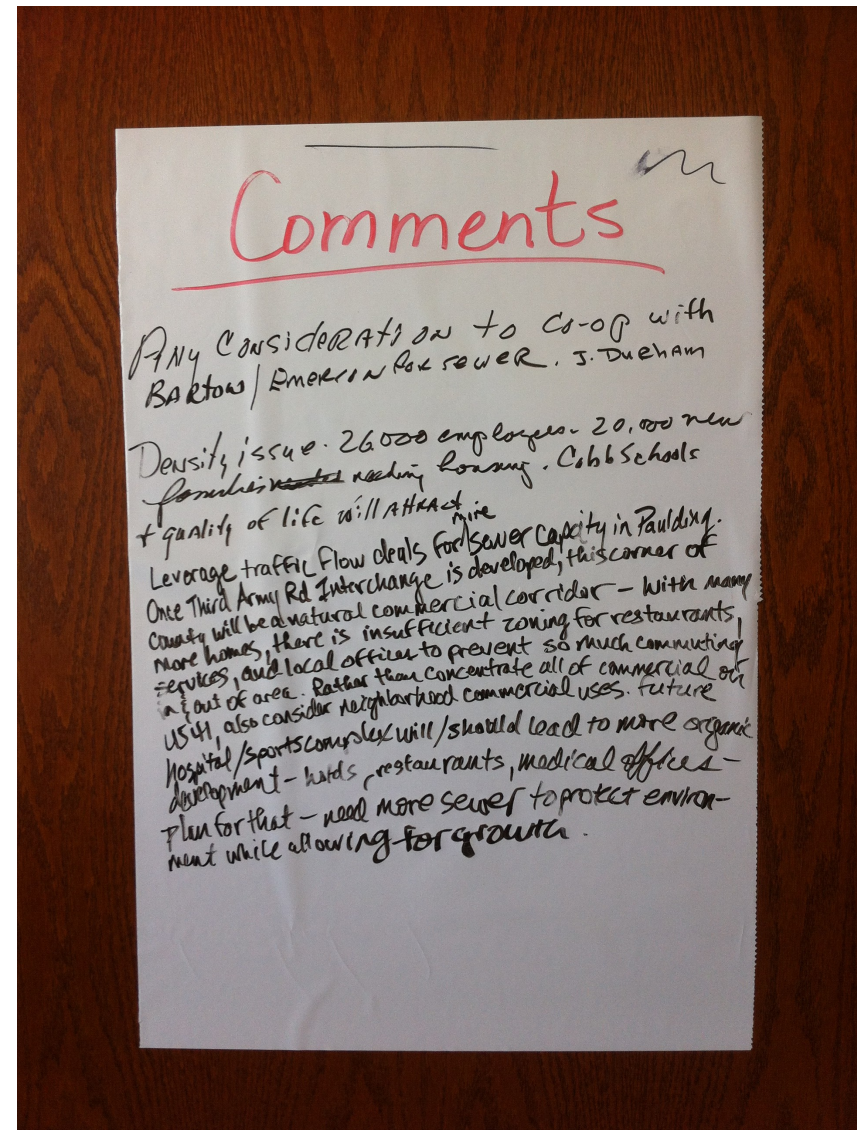 Comments
Any Consideration to Co-op with
Bartow/Emerson for sewer. J. Durham
Density issue. 26000 employees - 20,000 new
families needing housing. Cobb Schools
+ quality of life will attract
Leverage traffic flow deals for more sewer capacity in Paulding.
Once Third Army Rd Interchange is developed, this corner of
County will be a natural commercial corridor - with many
more homes, there is insufficient zoning for restaurants,
services, and local offices to prevent so much commuting
in & out of area. Rather than concentrate all of commercial on
US 41, also consider neighborhood commercial uses. Future
hospital/sportscomplex will/should lead to more organic
development - hotels, restaurants, medical offices -
Plan for that - need more sewer to protect environ-
ment while allowing for growth.